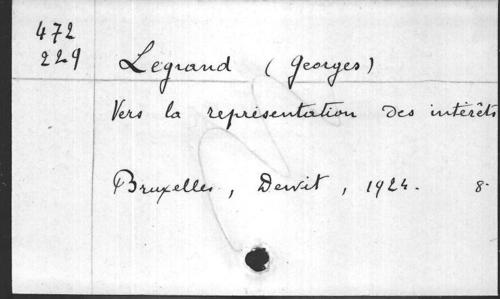 472
229
Legrand (Georges)
Vers la représentation des intérêts
Bruxelles, Dewit, 1924. 8-